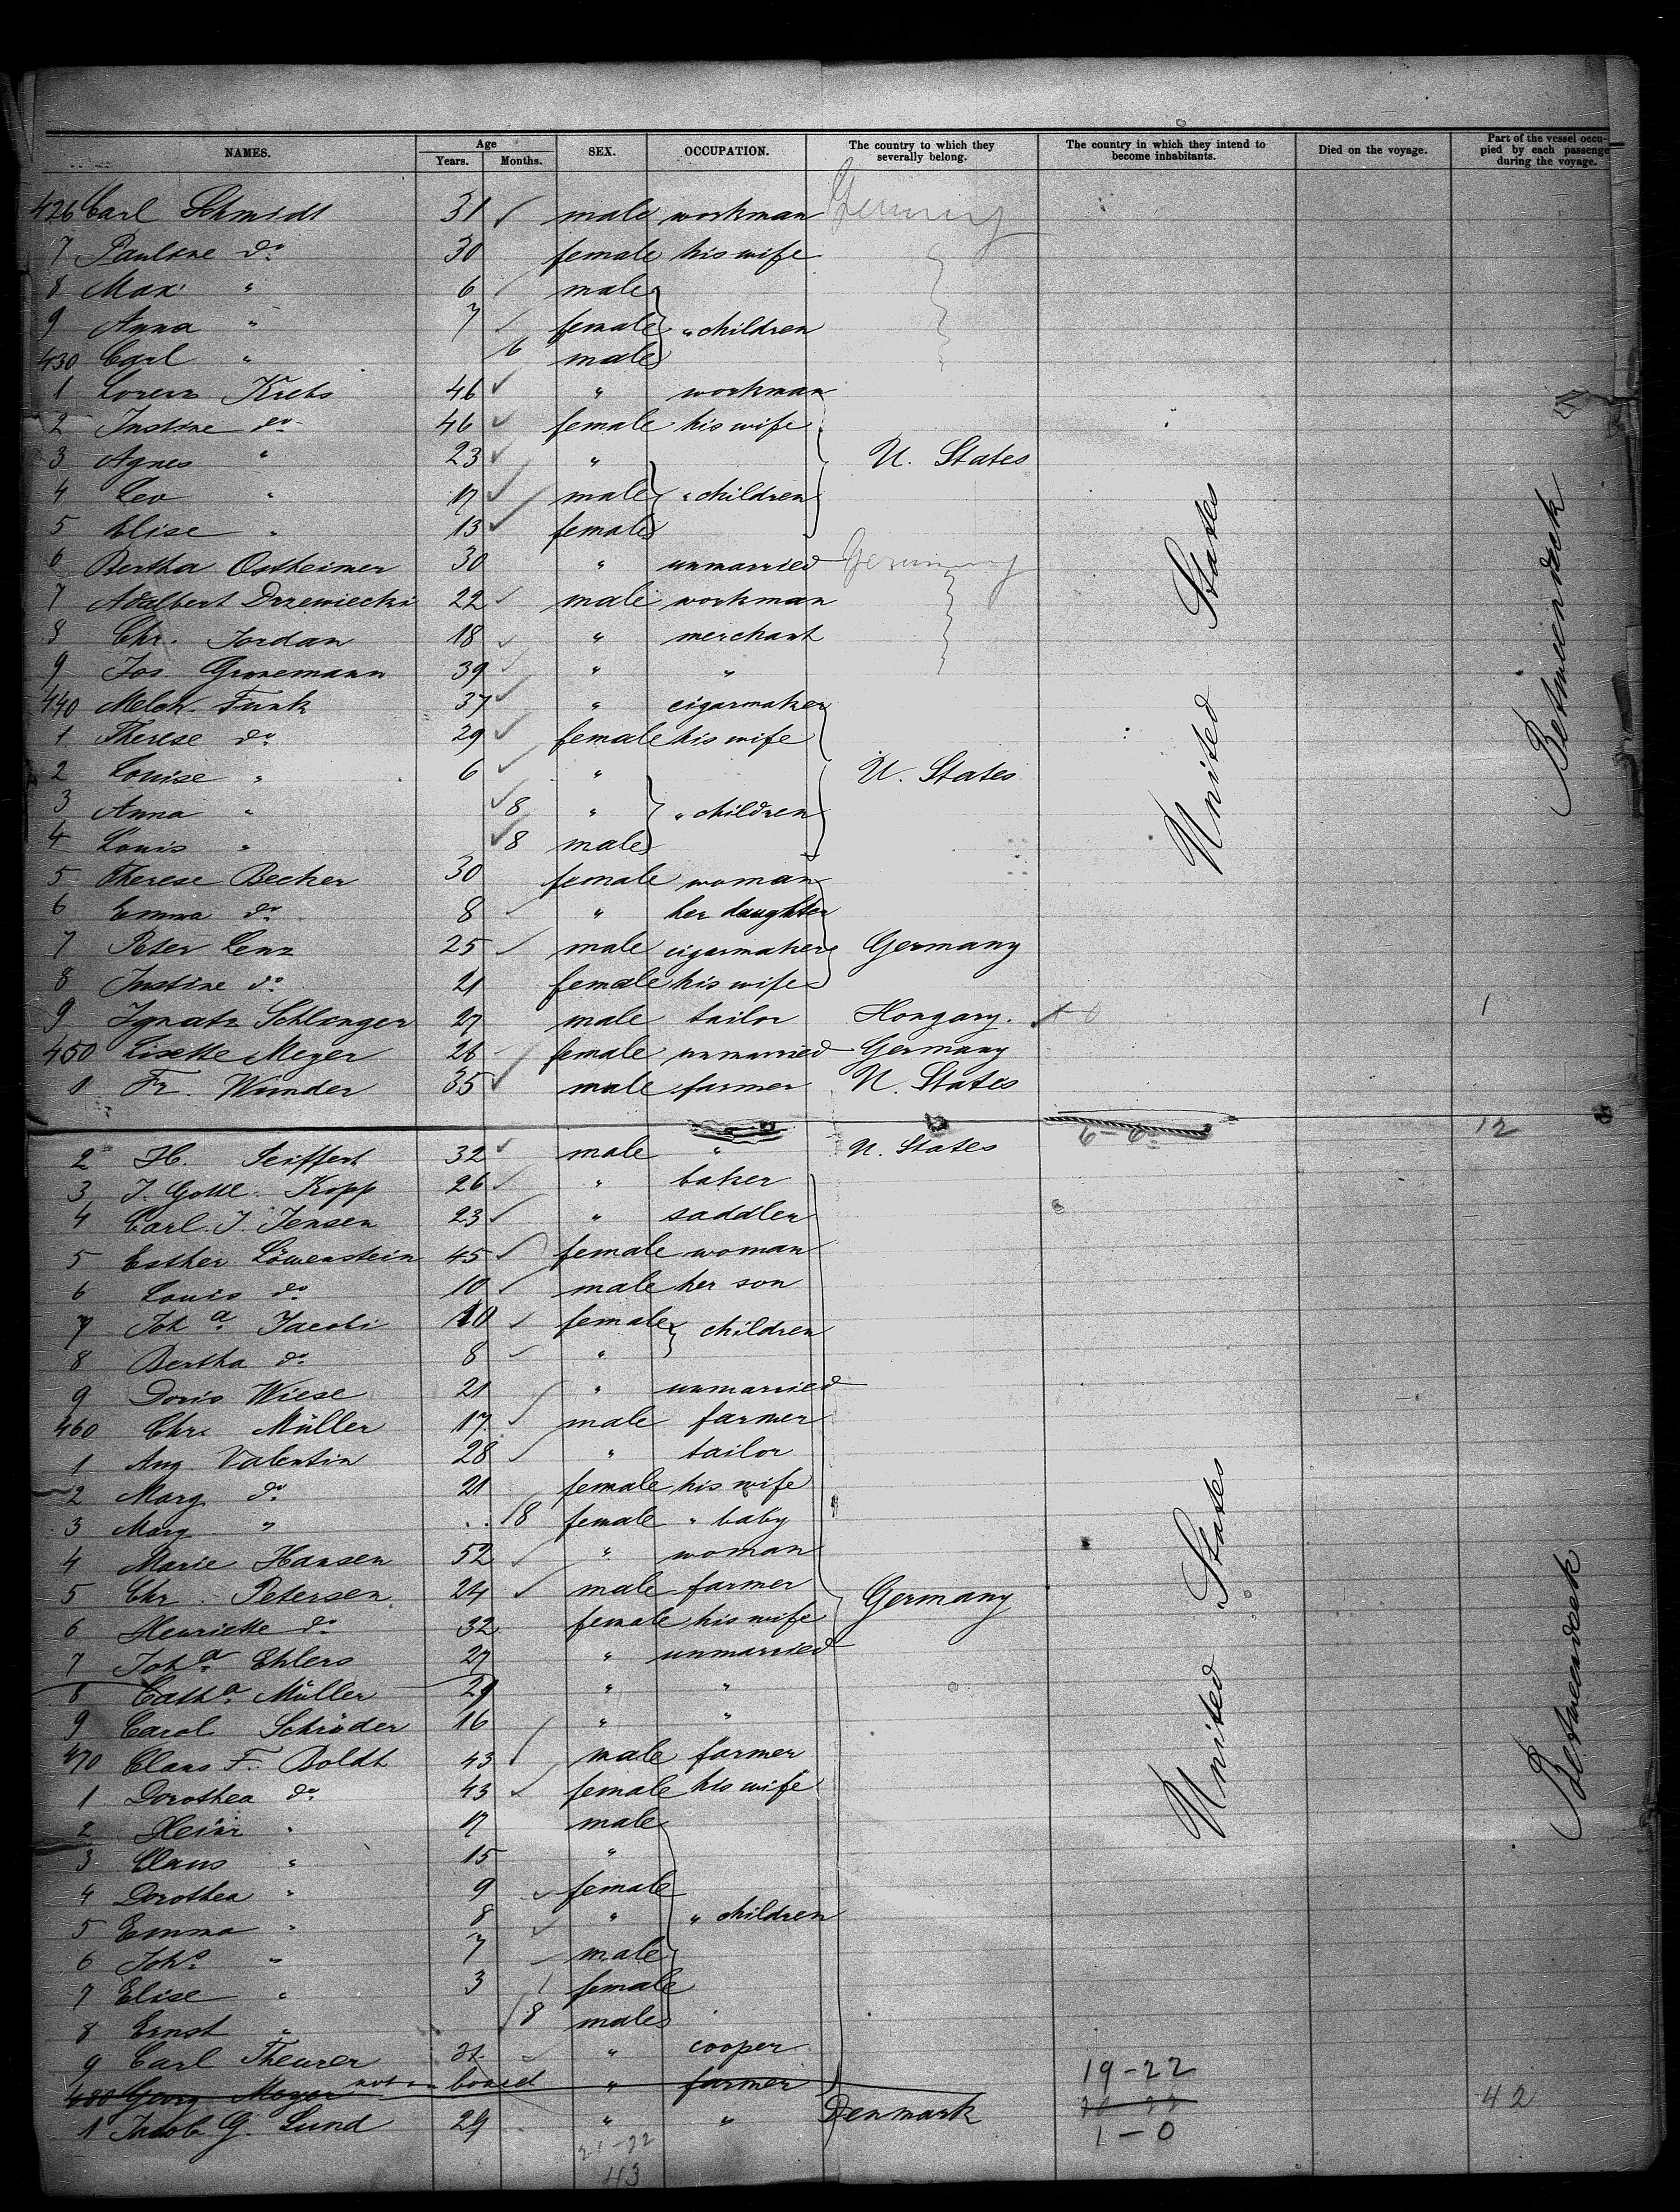 NAMES. Age Years. Months. SEX. OCCUPATION. The country to which they severally belong. The country in which they intend to become inhabitants. Died on the voyage. Part of the vessel occupied by each passenge during the voyage.
426 Carl Schmidt 31 male workman Germany
7 Pauline do 30 female his wife
8 Max " 6 male
9 Anna " 7 female " children
430 Carl " 6 male
1 Lorenz Krebs 46 " workman
2 Justine do 46 female his wife
3 Agnes " 23 " U. States
4 Leo " 17 male " children
5 Elise " 13 female
6 Bertha Ostheimer 30 " unmarried Germany
7 Adalbert Drzewiecki 22 male workman
8 Chr. Jordan 18 " merchant
9 Jos. Grunemann 39 " "
440 Melch. Funk 37 " cigarmaker
1 Therese do 29 female his wife
2 Louise " 6 " U. States
3 Anna " 8 " " children
4 Louis " 8 male
5 Therese Becker 30 female woman
6 Emma do 8 " her daughter
7 Peter Lenz 25 male cigarmaker Germany
8 Justine do 21 female his wife
9 Ignatz Schlinger 27 male tailor Hongary. 1
450 Lisette Meyer 26 female unmarried Germany
1 Fr. Wunder 35 male farmer U. States
United States
Betweendeck
6-6 12
2 H. Seiffert 32 male " U. States
3 J. Gottl. Kopp 26 " baker
4 Carl J. Jensen 23 " saddler
5 Esther Löwenstein 45 female woman
6 Louis do 10 male her son
7 Joha Jacobi 10 female children
8 Bertha do 8 "
9 Doris Wiese 21 " unmarried
460 Chr. Müller 17 male farmer
1 Aug. Valentin 28 " tailor
2 Marg. do 21 female his wife
3 Marg. " 8 female " baby
4 Marie Hansen 52 " woman
5 Chr. Petersen 24 male farmer Germany
6 Henriette do 32 female his wife
7 Joha Ehlers 27 " unmarried
8 Catha Müller 29 " "
9 Carol. Schröder 16 " "
470 Claus F. Boldt 43 male farmer
1 Dorothea do 43 female his wife
2 Heinr " 17 male
3 Claus " 15 "
4 Dorothea " 9 female
5 Emma " 8 " " children
6 Joh. " 7 male
7 Elise " 3 female
8 Ernst " 8 male
9 Carl Theurer 31 " cooper
480 Georg Meyer not on board " farmer
1 Jacob G. Lund 29 " " Denmark
United States
Betweendeck
19-22
1-0
42
21-22
43